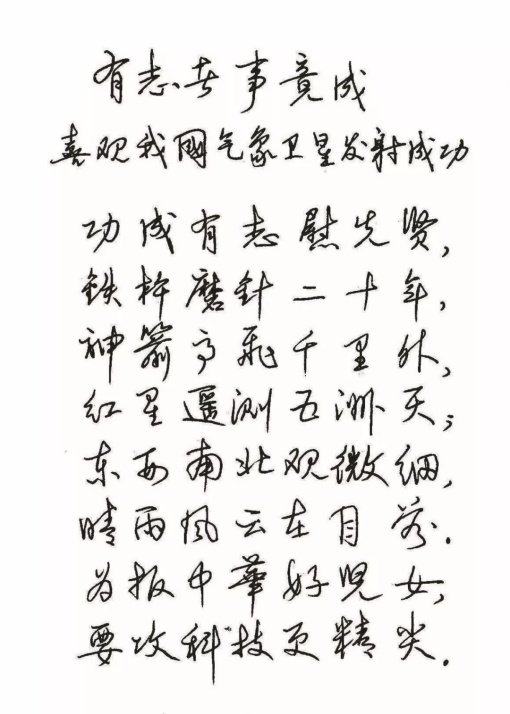 有志者事竟成
喜观我國气象卫星发射成功
功成有志慰先贤,
铁杵磨針二十年,
神箭高飞千里外,
红星遥测五洲天;
东西南北观微细,
晴雨风云在目前.
为报中華好兒女,
要攻科技更精尖.